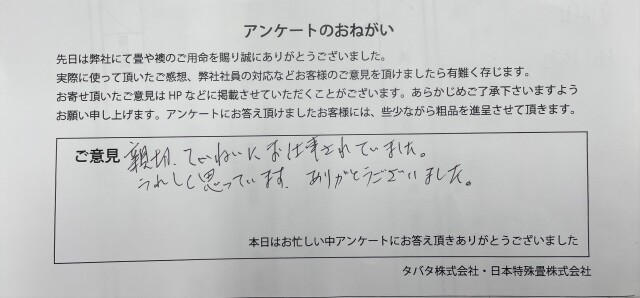 アンケートのおねがい
先日は弊社にて畳や襖のご用命を賜り誠にありがとうございました。
実際に使って頂いたご感想、弊社社員の対応などお客様のご意見を頂けましたら有難く存じます。
お寄せ頂いたご意見は HP などに掲載させていただくことがございます。あらかじめご了承下さいますよう
お願い申し上げます。アンケートにお答え頂けましたお客様には、些少ながら粗品を進呈させて頂きます。
ご意見 親切、ていねいにお仕事されていました。
うれしく思っています。ありがとうございました。
本日はお忙しい中アンケートにお答え頂きありがとうございました
タバタ株式会社・日本特殊畳株式会社